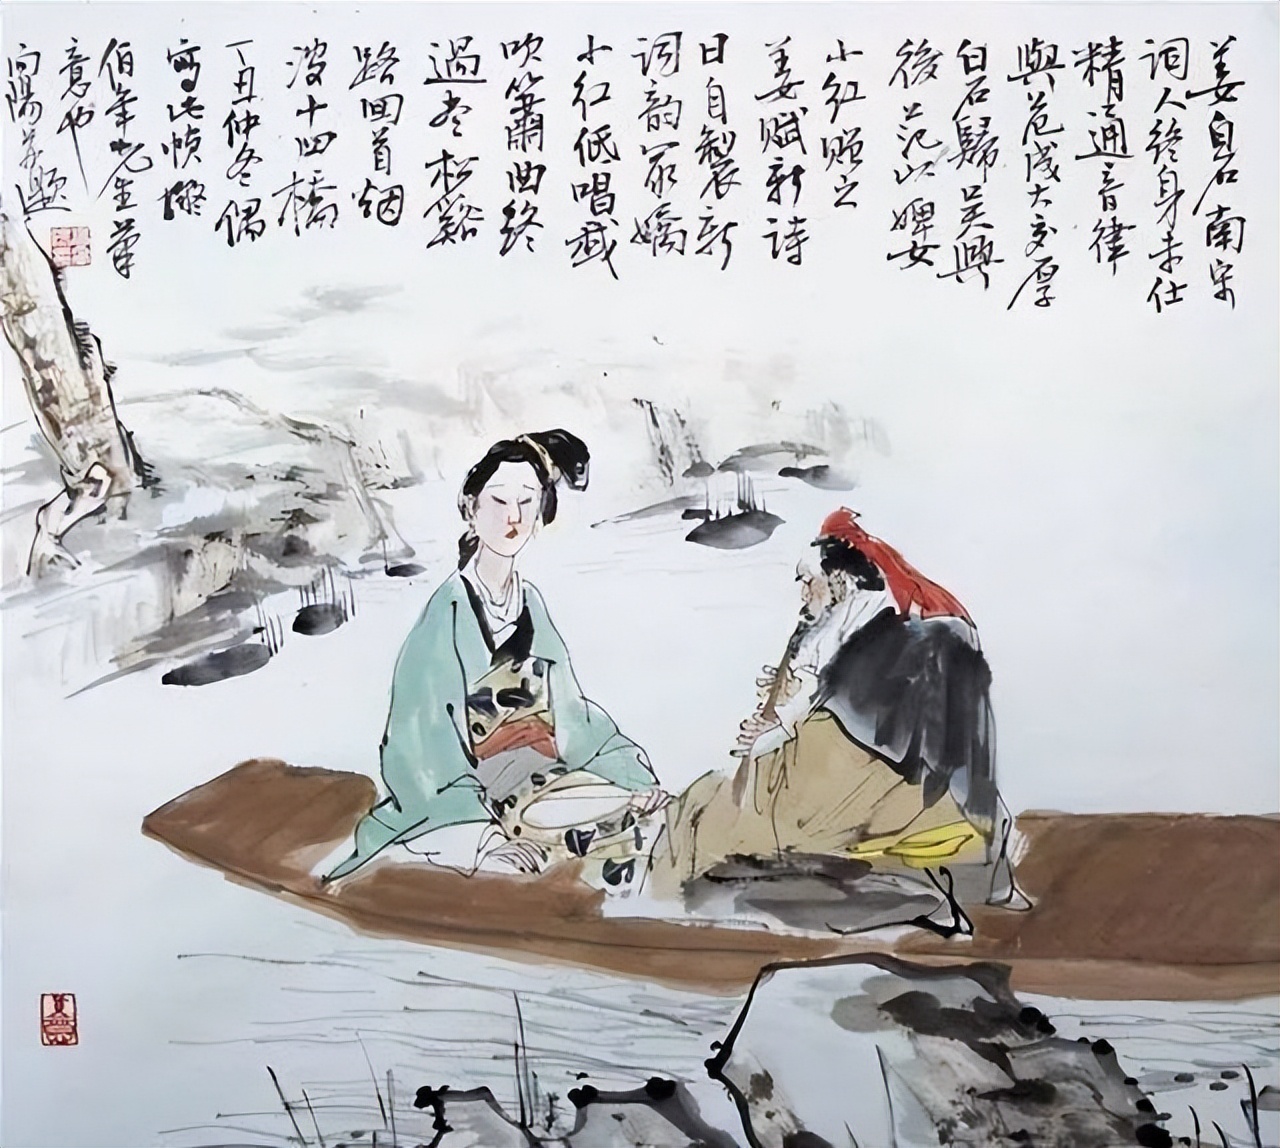 姜白石南宋
词人终身未仕
精通音律
與范成大交厚
白石歸吴興
後范以婢女
小红赠之
姜赋新诗
曰自製新
词韵最嬌
小红低唱我
吹簫曲终
過尽松谿
路回首烟
波十四橋
丁丑仲冬偶
寫此幀擬
伯年先生筆
意也
向陽并题